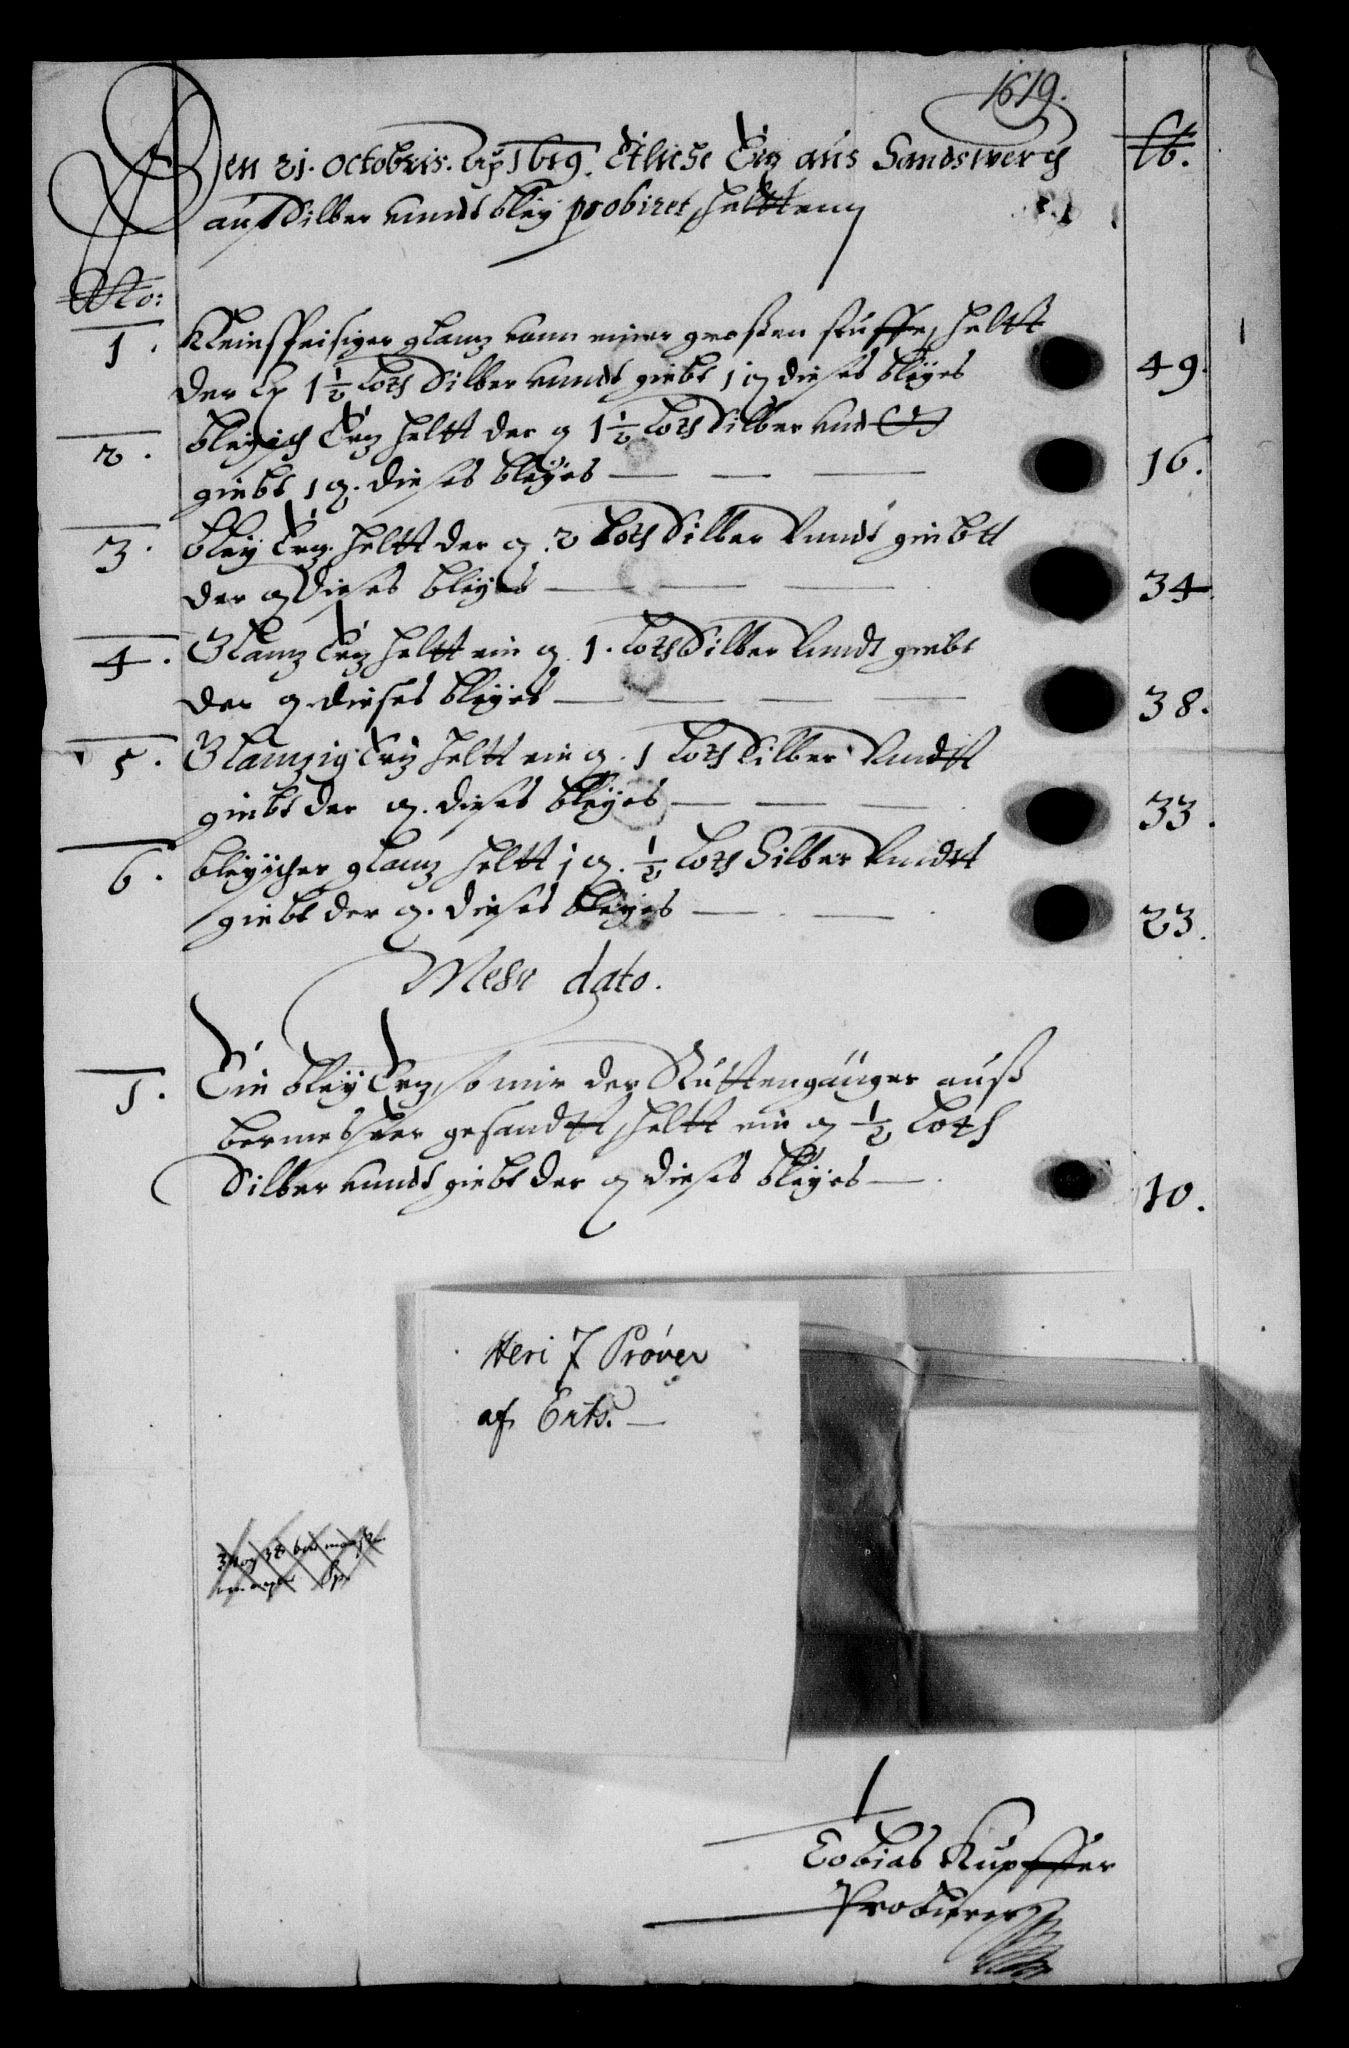 1619.
Den 21. Octobris. Ao 1619. Etliche Ertz aus Sandswerch
lb.
auff Silber unndt bley probiret, helttenn
No:
1. Kleinspeisiger glantz vonn einer grossen stuffe, heltt
der Cr 1½ Loth Silber unndt giebt 1 Cr dieses bleyes 49.
2. bleyisch Ertz heltt der Cr 1½ Loth Silber und
giebt 1 Cr. dieses bleyes 16.
3. bley Ertz. heltt der Cr. 2 Loth Silber Unndt giebtt
der Cr dieses bleyes 34.
4. Glantz Ertz heltt ein Cr. 1. Loth Silber Unndt giebt
der Cr dieses bleyes 38.
5. Glantzig Ertz heltt ein Cr. 1 Loth Silber Unndtt
giebt der Cr. dieses bleyes 33.
6. bleyischer glantz heltt 1 Cr. ½ Loth Silber Unndtt
giebt der Cr. dieses bleyes 23.
dato.
1. Ein bley Ertz, so mir der Ruttengänger auß
gesandtt, heltt ein Cr ½ Loth
Silber unndt giebt der Cr dieses bleyes 10.
Heri 7 Prøver
af Erts.
Tobias Kupffer
Probierer